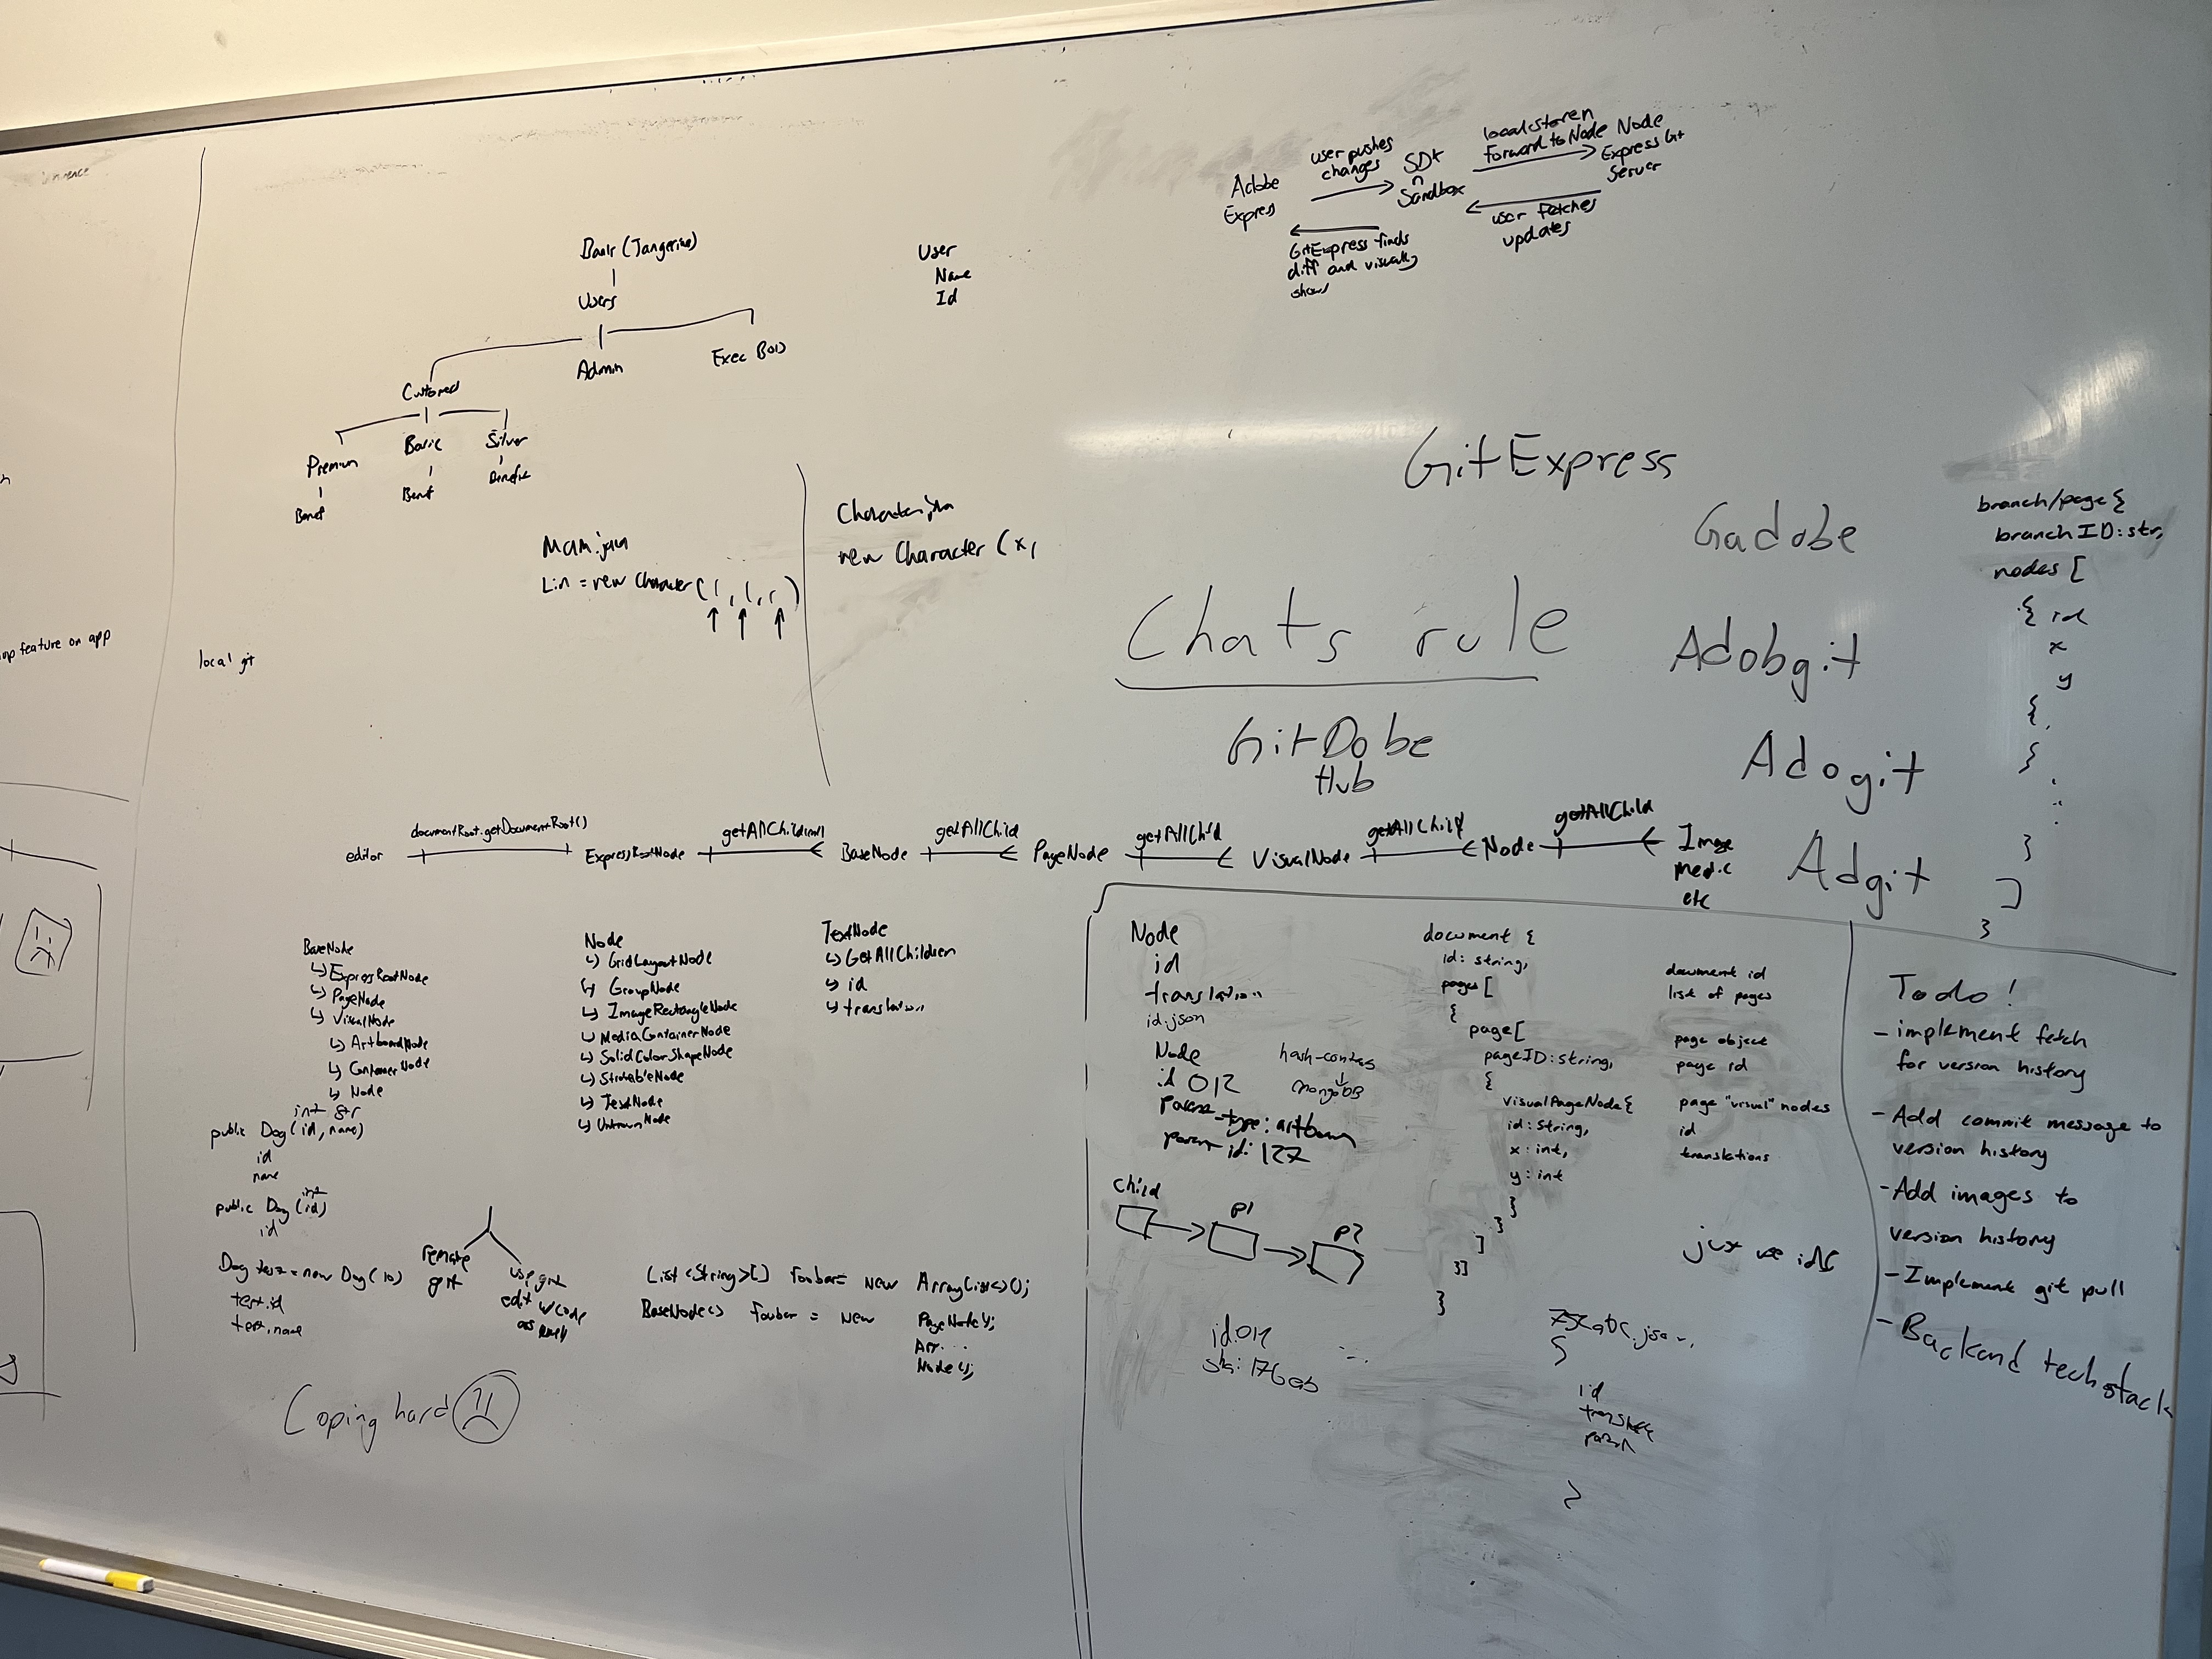 mp feature on app
local git
Bank (Tangerine)
Users
Admin
Exec
Premium
Basic
Silver
User
Name
Id
Main.java
Lin = new Character (1, 1, 1)
new Character (x,
Adobe
Express
user pushes
changes
SDK
Sandbox
forward to Node
Node
Express Git
Server
user fetches
updates
GitExpress finds
diff and visually
shows
GitExpress
Gadobe
Chats rule
Adobgit
GitDobe
Hub
Adogit
Adgit
branch/page {
branchID: str,
nodes [
{ id
x
y
{,
}
}
]
}
editor
documentRoot.getDocumentRoot()
ExpressRootNode
BaseNode
getAllChild
PageNode
getAllChild
VisualNode
getAllChild
Node
getAllChild
Image
Media
etc
BaseNode
↳ ExpressRootNode
↳ PageNode
↳ VisualNode
↳ ArtboardNode
↳ ContainerNode
↳ Node
Node
↳ GridLayoutNode
↳ GroupNode
↳ ImageRectangleNode
↳ MediaContainerNode
↳ SolidColorShapeNode
↳ StrokableNode
↳ TextNode
↳ UnknownNode
TextNode
↳ GetAllChildren
↳ id
↳ translation
int str
public Dog (id, name)
id
name
int
public Dog (id)
id
Dog test = new Dog (10)
test.id
test.name
remake
git
use git
edit w code
List <String>[] foobar = new ArrayList<>();
BaseNode<> foobar = new PageNode();
Arr...
Node();
Coping hard
Node
id
translation
id.json
Node
id 012
parent-type: artboard
parent-id: 127
MongoDB
Child
P1
P2
id: 014
document {
id: string,
pages [
{
page [
pageID: string,
{
visualPageNode {
id: string,
x: int,
y: int
}
}
]
}]
}
document id
list of pages
page object
page id
page "visual" nodes
id
translations
just use ids
id
Todo!
- implement fetch
for version history
- Add commit message to
version history
- Add images to
version history
- Implement git pull
- Backend tech stack